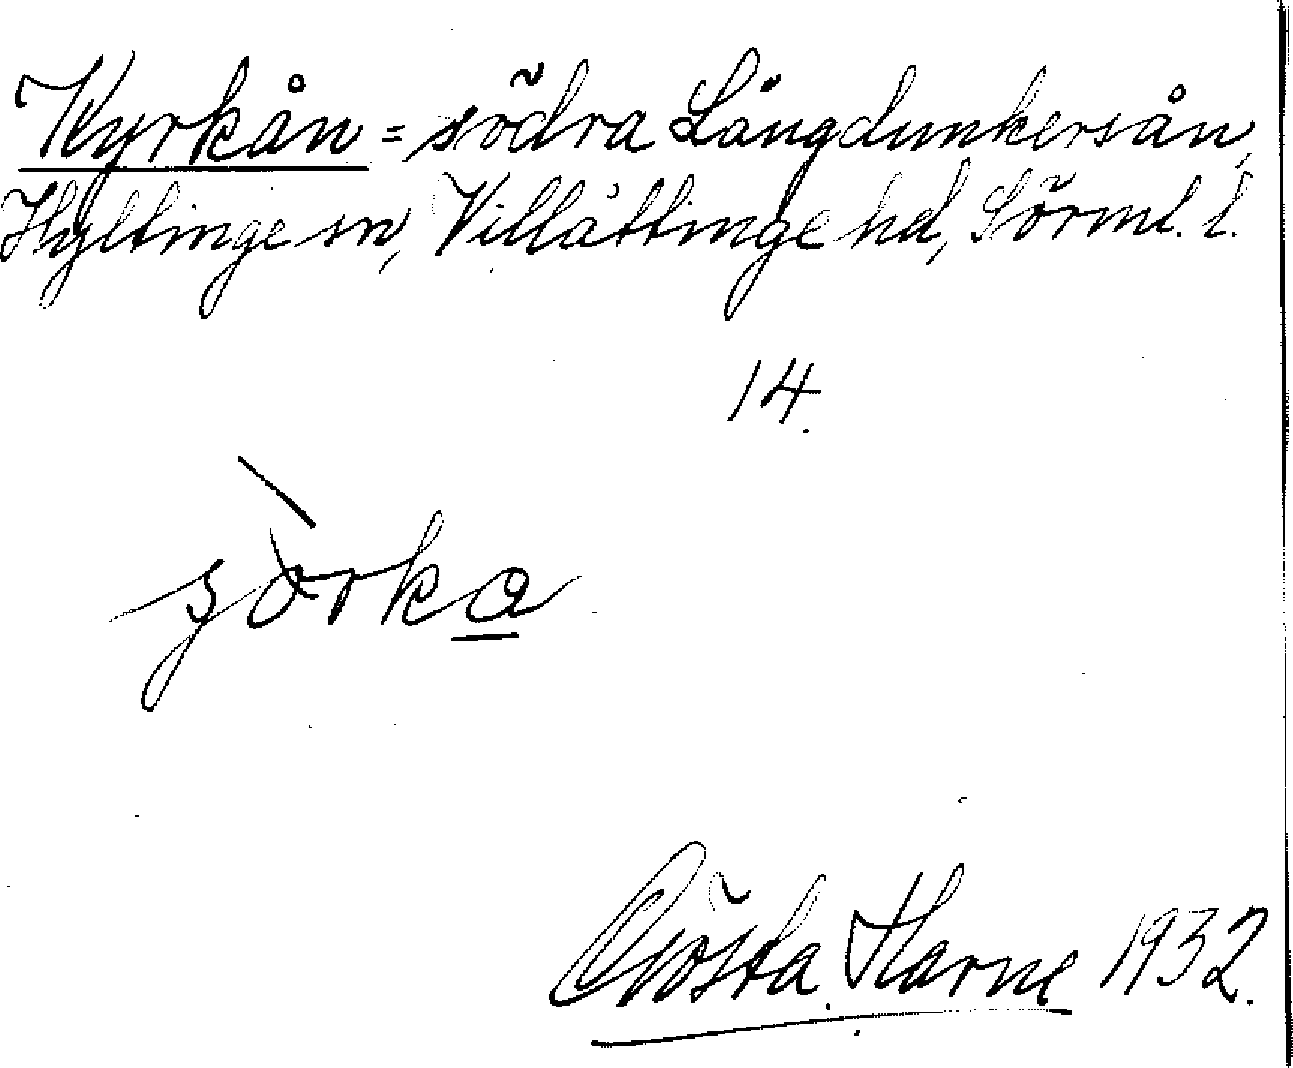 Kyrkån = södra Långdunkersån,
Hyltinge sn, Villåttinge hd, Sörml. l.
14.
Gösta Harne 1932.